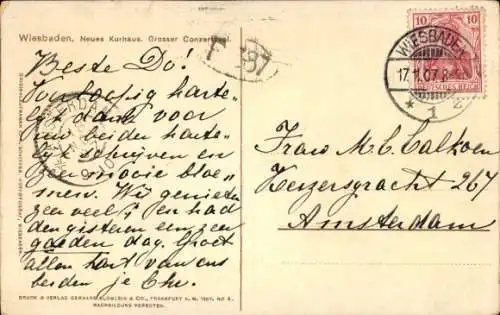 Wiesbaden, Neues Kurhaus. Grosser Conzertsaal.
Beste Do!
Voorloopig harte-
lijk dank voor
uw beider harte-
lijk schrijven en
zeer mooie bloe-
men. Wij genieten
zeer veel en had
den gisteren een zeer
goeden dag. Groet
allen hart van ons
beiden je Che.
10 10
DEUTSCHES REICH
WIESBADEN
17.11.07
* 1
F 387
Frau M. C. Calkoen
Keizersgracht 267
Amsterdam
DRUCK & VERLAG GEBHARD KLOMSEIN & CO., FRANKFURT A. M. 1907. NO 5.
NACHBILDUNG VERBOTEN.